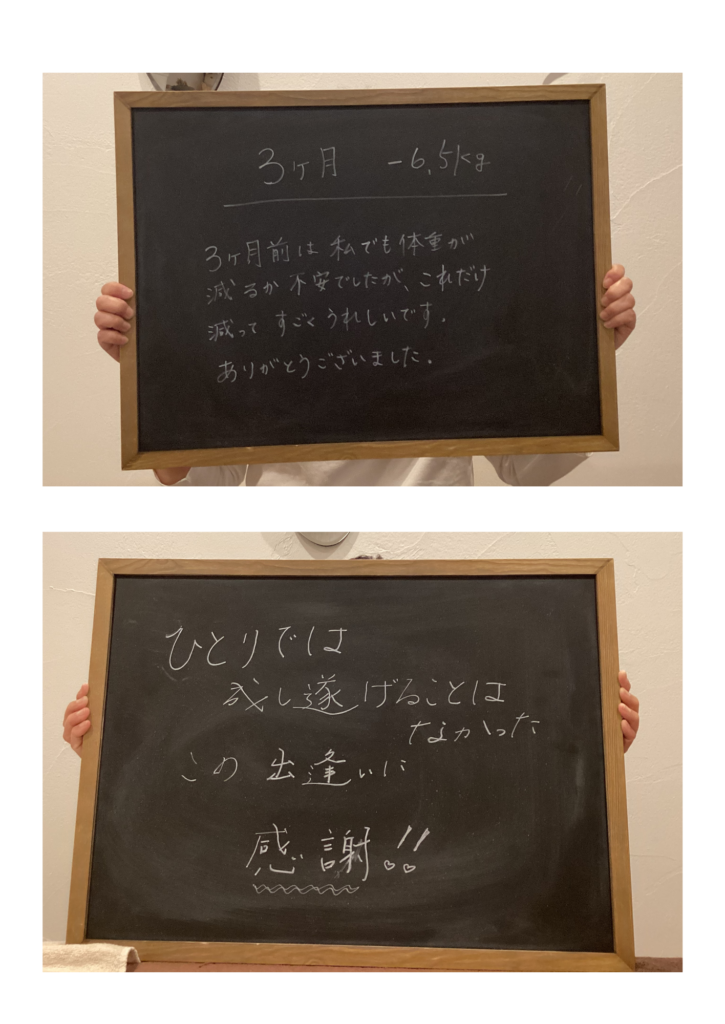 3ヶ月 -6.5kg
3ヶ月前は私でも体重が
減るか不安でしたが、これだけ
減って すごくうれしいです.
ありがとうございました。
ひとりでは
成し遂げることは
なかった
この出逢いに
感謝!!